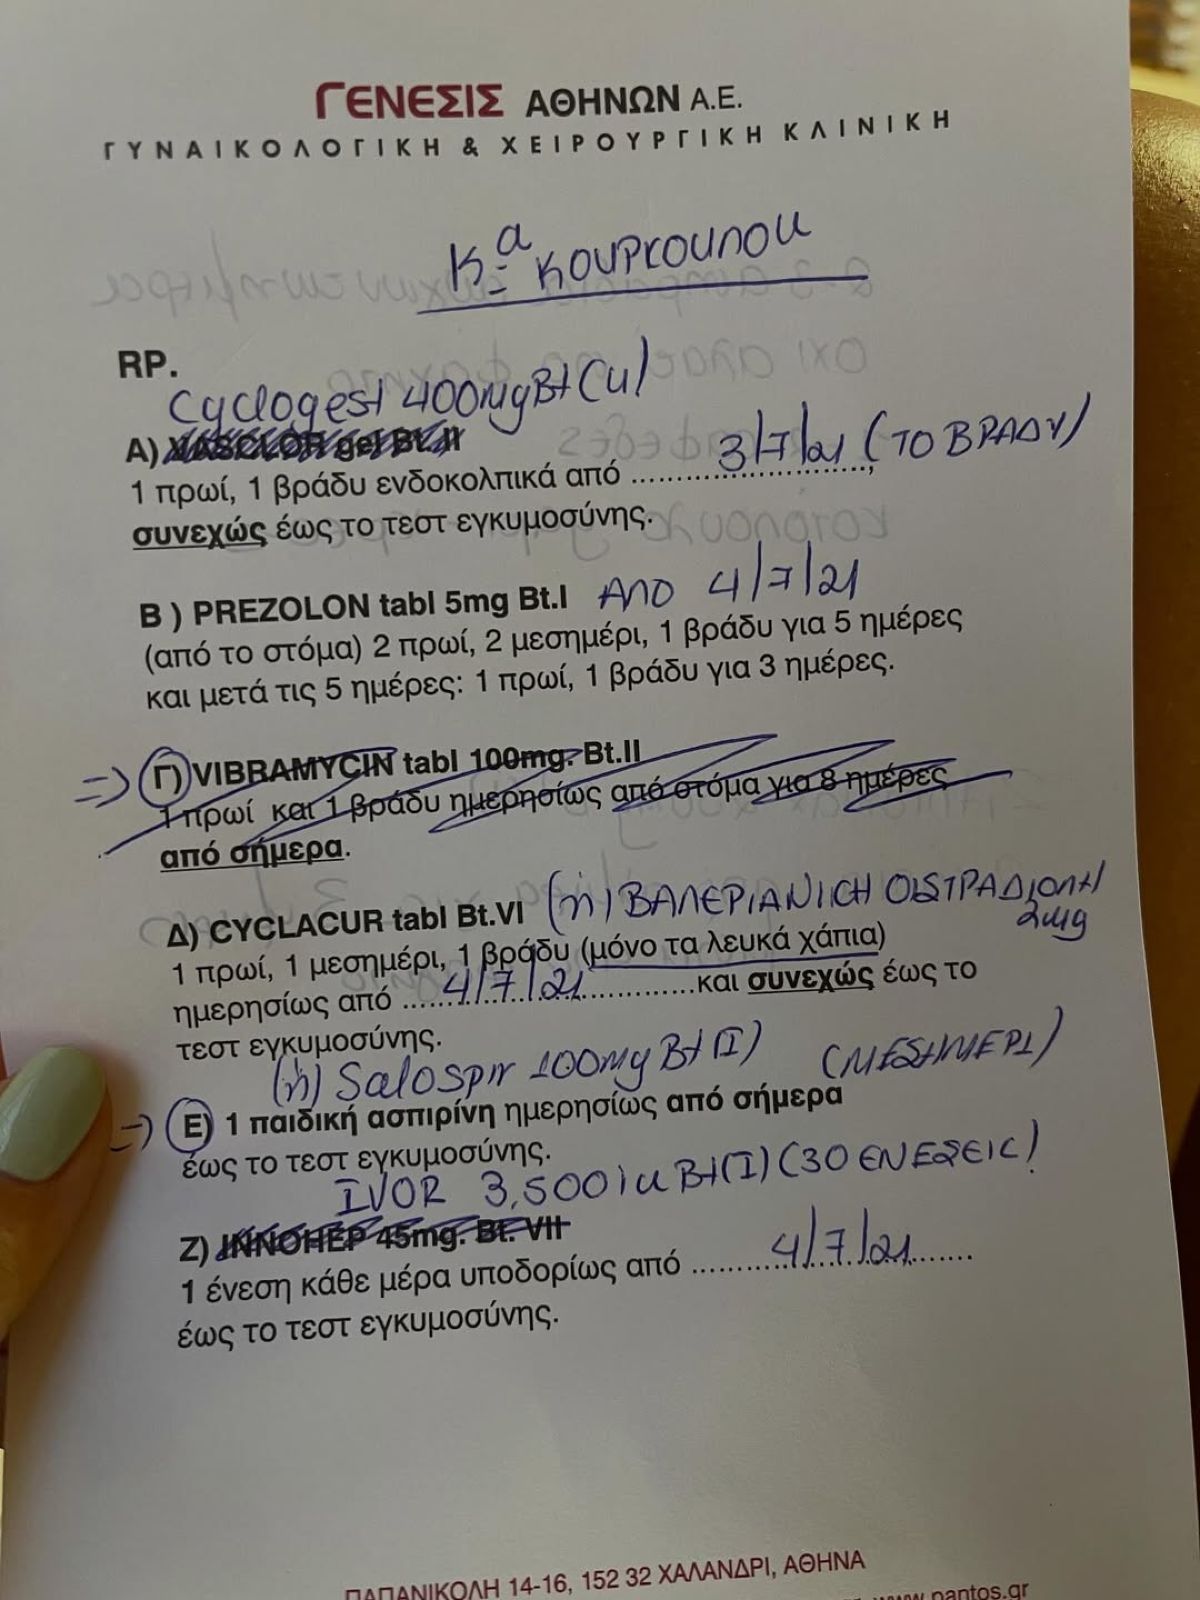 ΓΕΝΕΣΙΣ ΑΘΗΝΩΝ Α.Ε.
ΓΥΝΑΙΚΟΛΟΓΙΚΗ & ΧΕΙΡΟΥΡΓΙΚΗ ΚΛΙΝΙΚΗ
Κα
RP.
Cyclogest 400mg Bt
Α) gel Bt.II
3/7/21 (ΤΟ ΒΡΑΔΥ)
1 πρωί, 1 βράδυ ενδοκολπικά από ....................,
συνεχώς έως το τεστ εγκυμοσύνης.
Β ) PREZOLON tabl 5mg Bt.I ΑΠΟ 4/7/21
(από το στόμα) 2 πρωί, 2 μεσημέρι, 1 βράδυ για 5 ημέρες
και μετά τις 5 ημέρες: 1 πρωί, 1 βράδυ για 3 ημέρες.
=> Γ) VIBRAMYCIN tabl 100mg. Bt.II
1 πρωί και 1 βράδυ ημερησίως από στόμα για 8 ημέρες
από σήμερα.
Δ) CYCLACUR tabl Bt.VI (ή) ΒΑΛΕΡΙΑΝΙΚΗ ΟΙΣΤΡΑΔΙΟΛΗ
2mg
1 πρωί, 1 μεσημέρι, 1 βράδυ (μόνο τα λευκά χάπια)
ημερησίως από ...4/7/21...........και συνεχώς έως το
τεστ εγκυμοσύνης.
(ή) Salospir 100mg Bt (I) (ΜΕΣΗΜΕΡΙ)
=> Ε) 1 παιδική ασπιρίνη ημερησίως από σήμερα
έως το τεστ εγκυμοσύνης.
IVOR 3,500iu Bt(I) (30 ΕΝΕΣΕΙΣ)
Ζ) INNOHEP 45mg. Bt. VII
1 ένεση κάθε μέρα υποδορίως από .......4/7/21.......
έως το τεστ εγκυμοσύνης.
ΠΑΠΑΝΙΚΟΛΗ 14-16, 152 32 ΧΑΛΑΝΔΡΙ, ΑΘΗΝΑ
www.pantos.gr